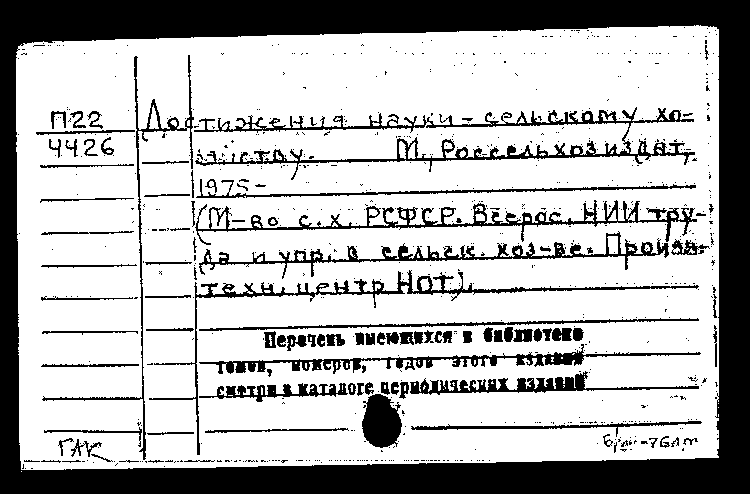 П22
4426
Достижения науки - сельскому хо-
зяйству. М., Россельхозиздат,
1975-
(М-во с.х. РСФСР. Всерос. НИИ тру-
да и упр. в сельск. хоз-ве. Произв.-
техн. центр НОТ).
Перечень имеющихся в библиотеке
томов, номеров, годов этого издания
смотри в каталоге периодических изданий
ГАК